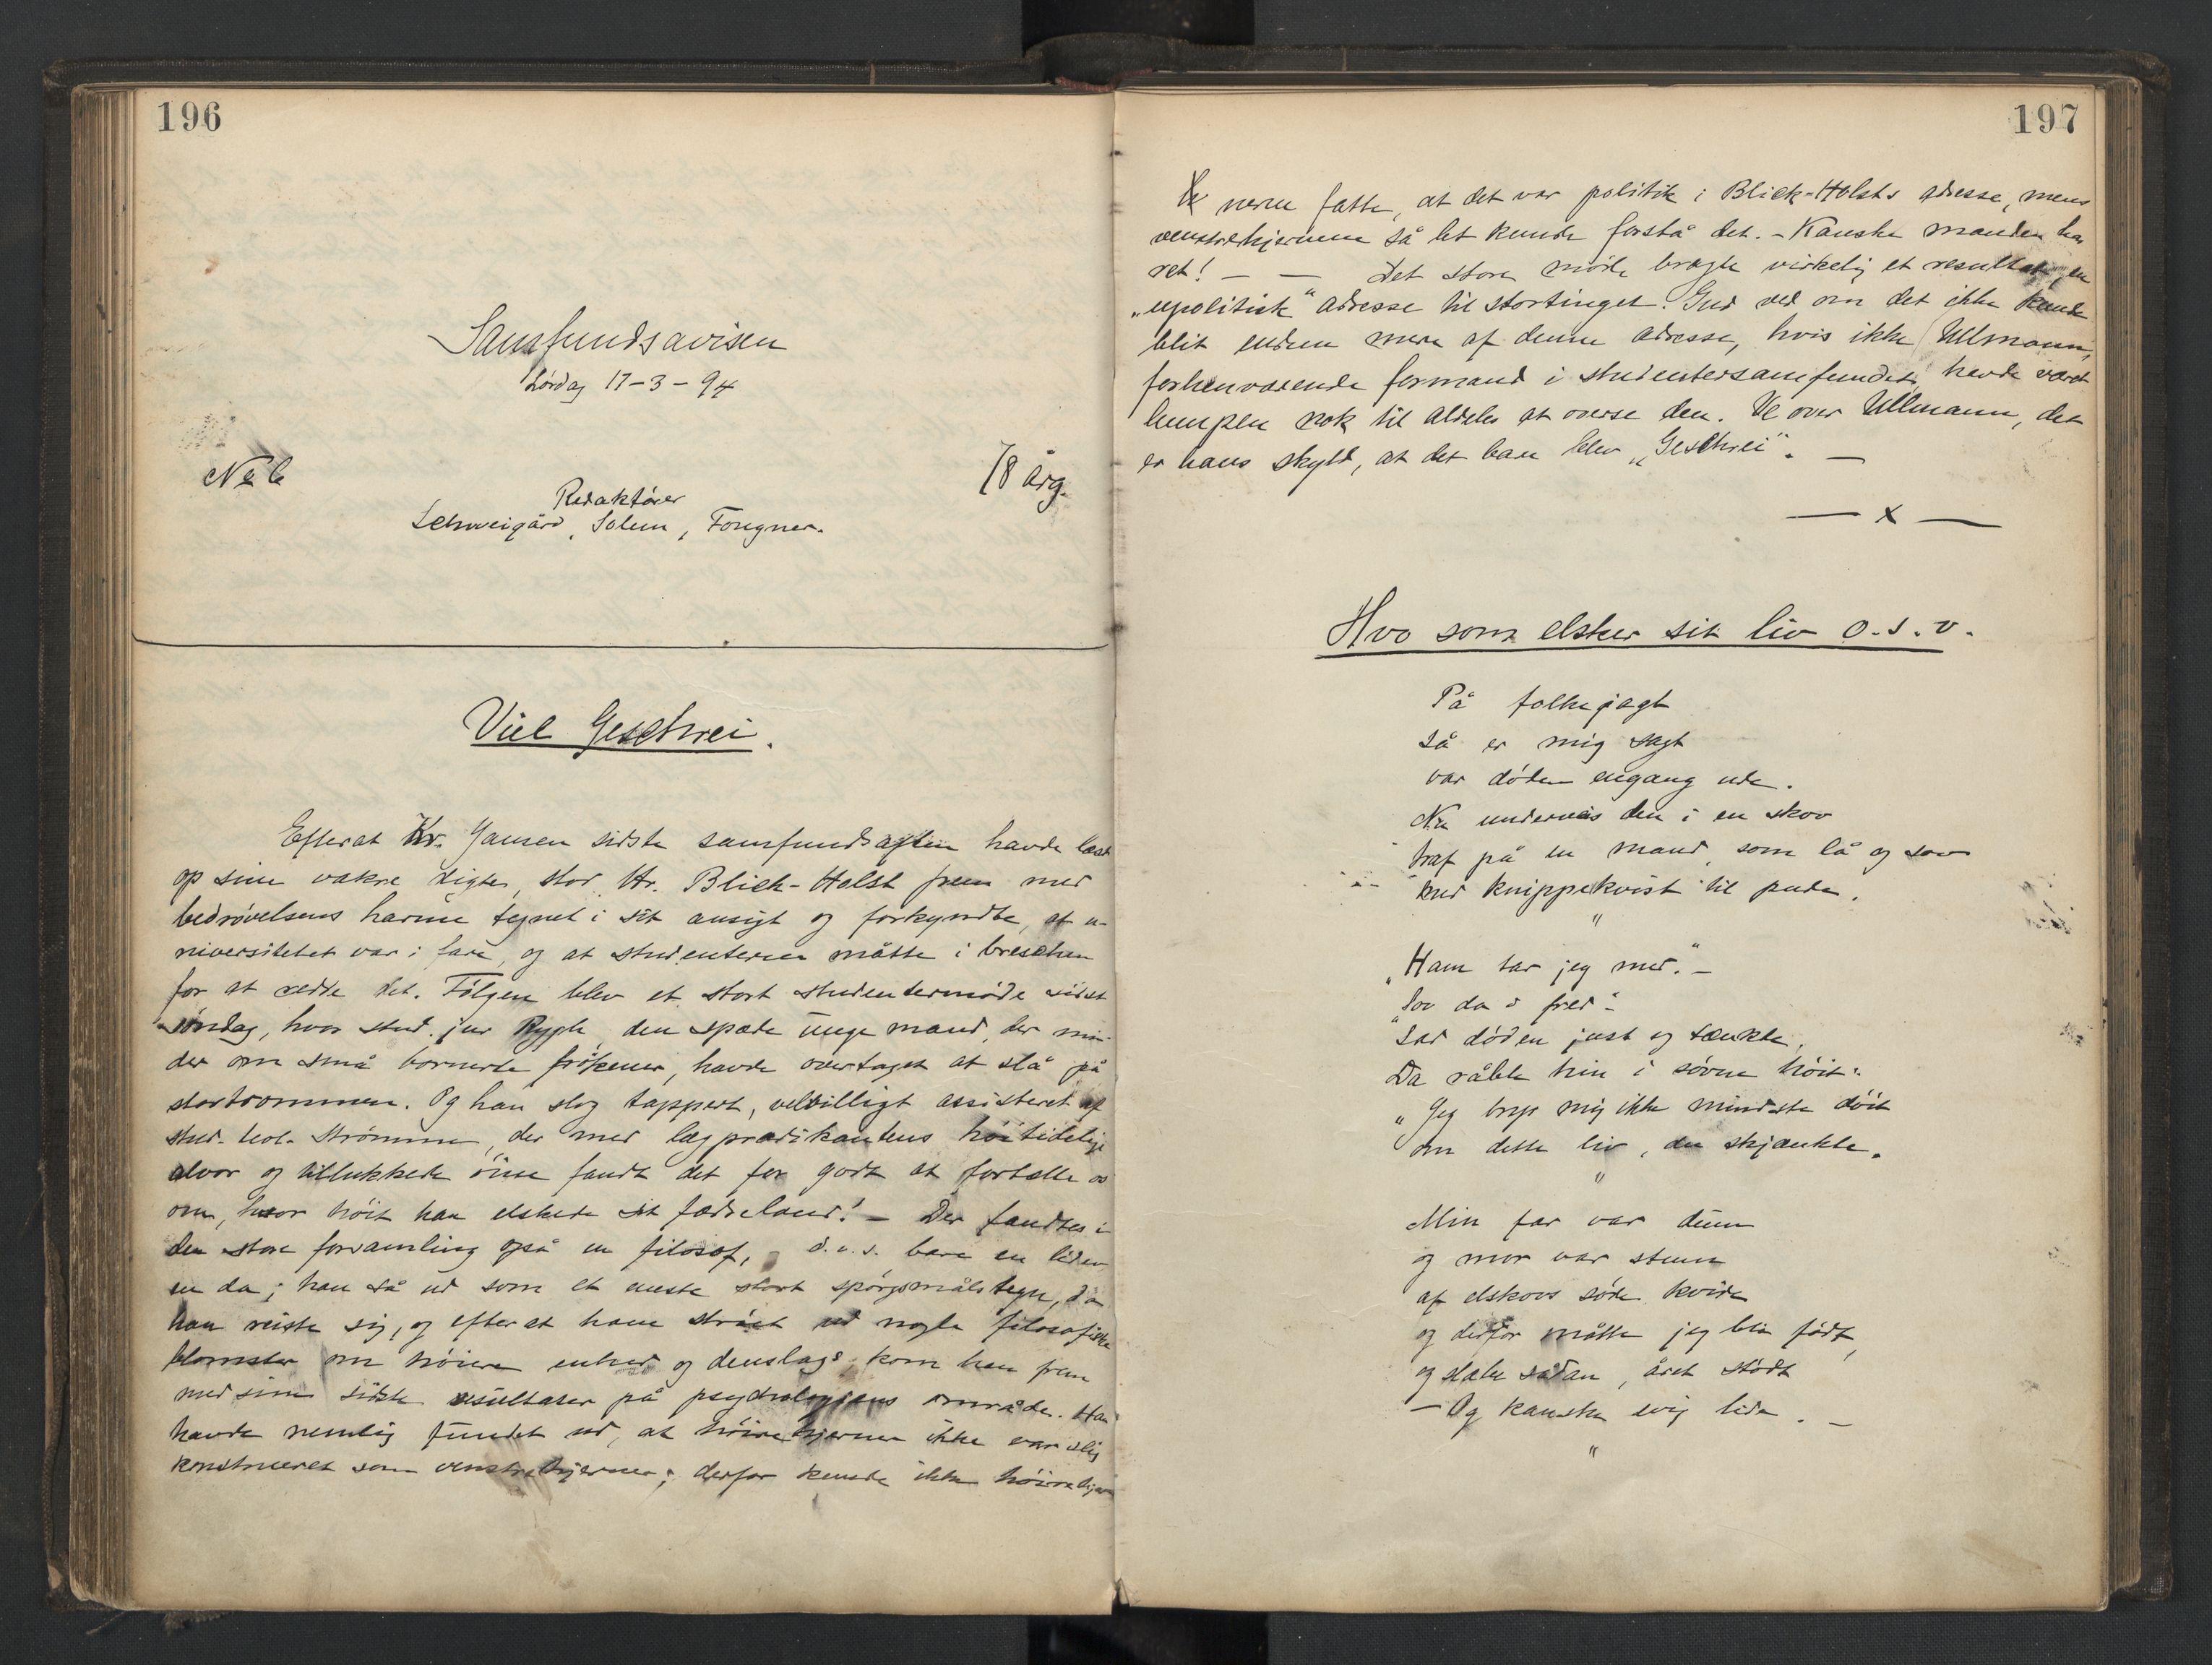 196
Samfundsavisen
Lørdag 17-3-94
No 6
78 årg.
Redaktører
Schweigård, Solem, Fougner.
Viel Geschrei.
Efterat Kr. Janson sidste samfundsaften havde læst
op sine vakre digte, stod Hr. Blick-Holst frem med
bedrøvelsens harme tegnet i sit ansigt og forkyndte, at u-
niversitetet var i fare, og at studenterne måtte i breschen
for at redde det. Følgen blev et stort studentermøde sidst
søndag, hvor stud. jur Rygh, den spæde unge mand, der min-
der om små bornerte frøkener, havde overtaget at slå på
stortrommen. Og han slog tappert, velvilligt assisteret af
stud. teol. Strømme, der med lægprædikantens høitidelige
alvor og tillukkede øine fandt det for godt at fortælle os
om, hvor høit han elskede sit fædreland! – Der fandtes i
den store forsamling også en filosof, d.v.s. bare en liden
en da; han så ud som et eneste stort spørgsmålstegn, da
han reiste sig, og efterat have strøet ud nogle filosofiske
blomster om høiere enhed og denslags kom han frem
med sine sidste resultater på psychologiens område. Han
havde nemlig fundet ud, at høirehjerner ikke var slig
konstrueret som venstrehjerner; derfor kunde ikke høirehjer-
197
nerne fatte, at det var politik i Blick-Holsts adresse, mens
venstrehjernene så let kunde forstå det. – Kanske manden har
ret! – – Det store møde bragte virkelig et resultat, en
„upolitisk“ adresse til stortinget. Gud ved om det ikke kunde
blit endnu mere af denne adresse, hvis ikke Ullmann,
forhenværende formand i studentersamfundet, havde været
lumpen nok til aldeles at overse den. Ve over Ullmann, det
er hans skyld, at det bare blev „Geschrei“. –
— x —
Hvo som elsker sit liv o.s.v.
På folkejagt
så er mig sagt
var døden engang ude.
Nu underveis den i en skov
traf på en mand, som lå og sov
med knippekvist til pude.
"
„Ham tar jeg med.“ –
„Sov da i fred“
Sad døden just og tænkte,
Da råbte hin i søvne høit:
„Jeg bryr mig ikke mindste døit
om dette liv, du skjænkte.
"
Min far var dum
og mor var stum
af elskovs søde kvide
og derfor måtte jeg bli født,
og slæbe sådan, året stødt
– Og kanske evig lide. –
"